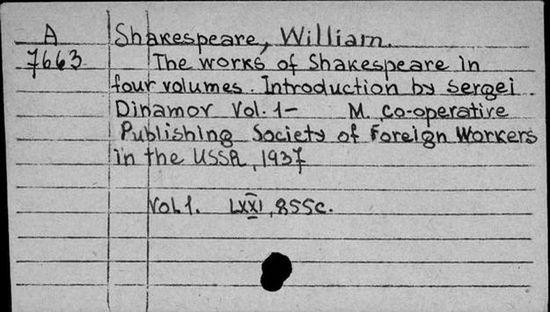 A Shakespeare, William.
7663 The works of Shakespeare in
four volumes. Introduction by Sergei
Dinamov Vol. 1- M. Co-operative
Publishing Society of Foreign Workers
in the USSR, 1937
Vol. 1. LXXI, 855c.